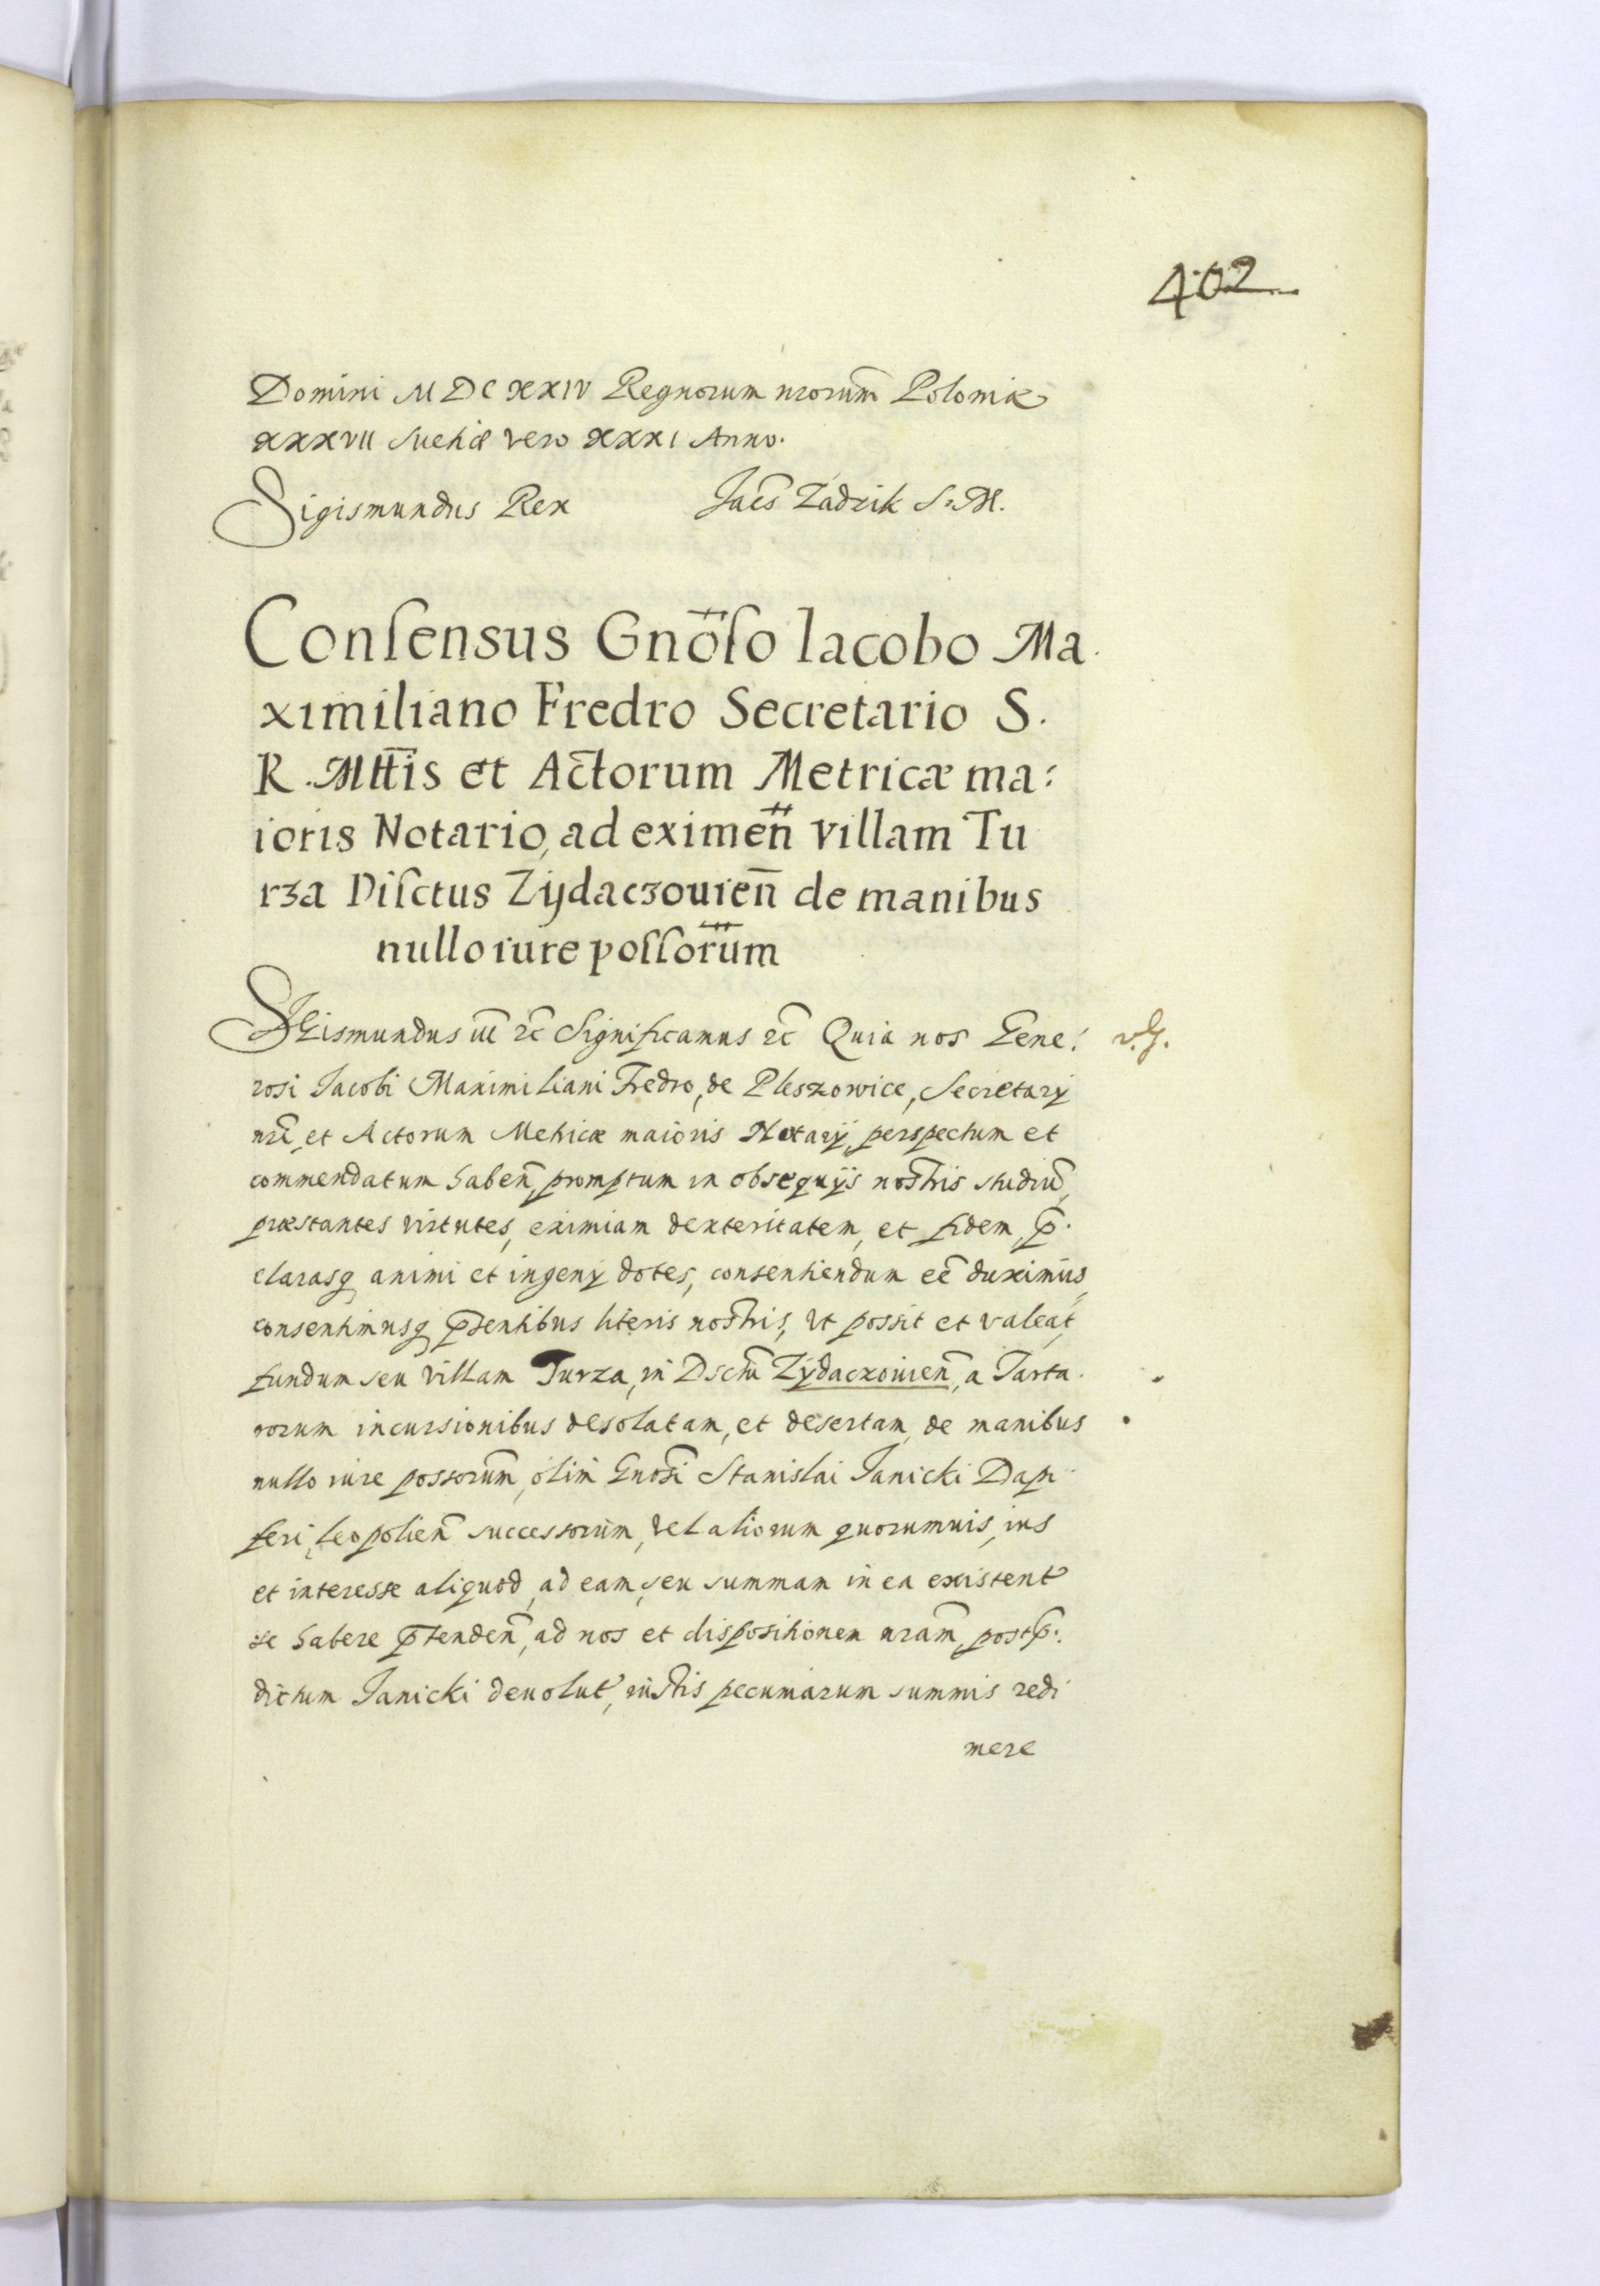 402
Domini MDCXXIV Regnorum nrorum̃ Poloniæ
XXXVII Suetiæ vero XXXI Anno.
Sigismundus Rex Jacs̃ Zadzik S. M.
Consensus Gnõso Iacobo Ma
ximiliano Fredro Secretario S.
R. Mtt̃is et Actorum Metricæ ma:
ioris Notario, ad eximeñ villam Tu
rza Disctus Zÿdaczouieñ de manibus
nullo iure possorũm
SIGismundus etc̃ Significamus etc̃ Quia nos Gene:
rosi Jacobi Maximiliani Fredro, de Pleszowice, Secretarÿ
nrĩ, et Actorum Metricæ maioris Notarÿ, perspectum et
commendatum habeñ, promptum in obsequÿs nostris studiũ,
præstantes virtutes, eximiam dexteritatem, et fidem, p̃.
clarasq animi et ingenÿ dotes, consentiendum eẽ duximus,
consentimusq p̃sentibus literis nostris, vt possit et valeat,
fundum seu villam Turza, in Dsctũ Zÿdaczouieñ, a Tarta.
rorum incursionibus desolatam, et desertam, de manibus
nullo iure possorũm, olim Gnosĩ Stanislai Janicki Dapi
feri, Leopolieñ successorum, vel aliorum quorumuis, ius
et interesse aliquod, ad eam, seu summam in ea existent
se habere p̃tendeñ, ad nos et dispositionem nram̃, post p̃:
dictum Janicki deuolut, iustis pecuniarum summis redi
mere